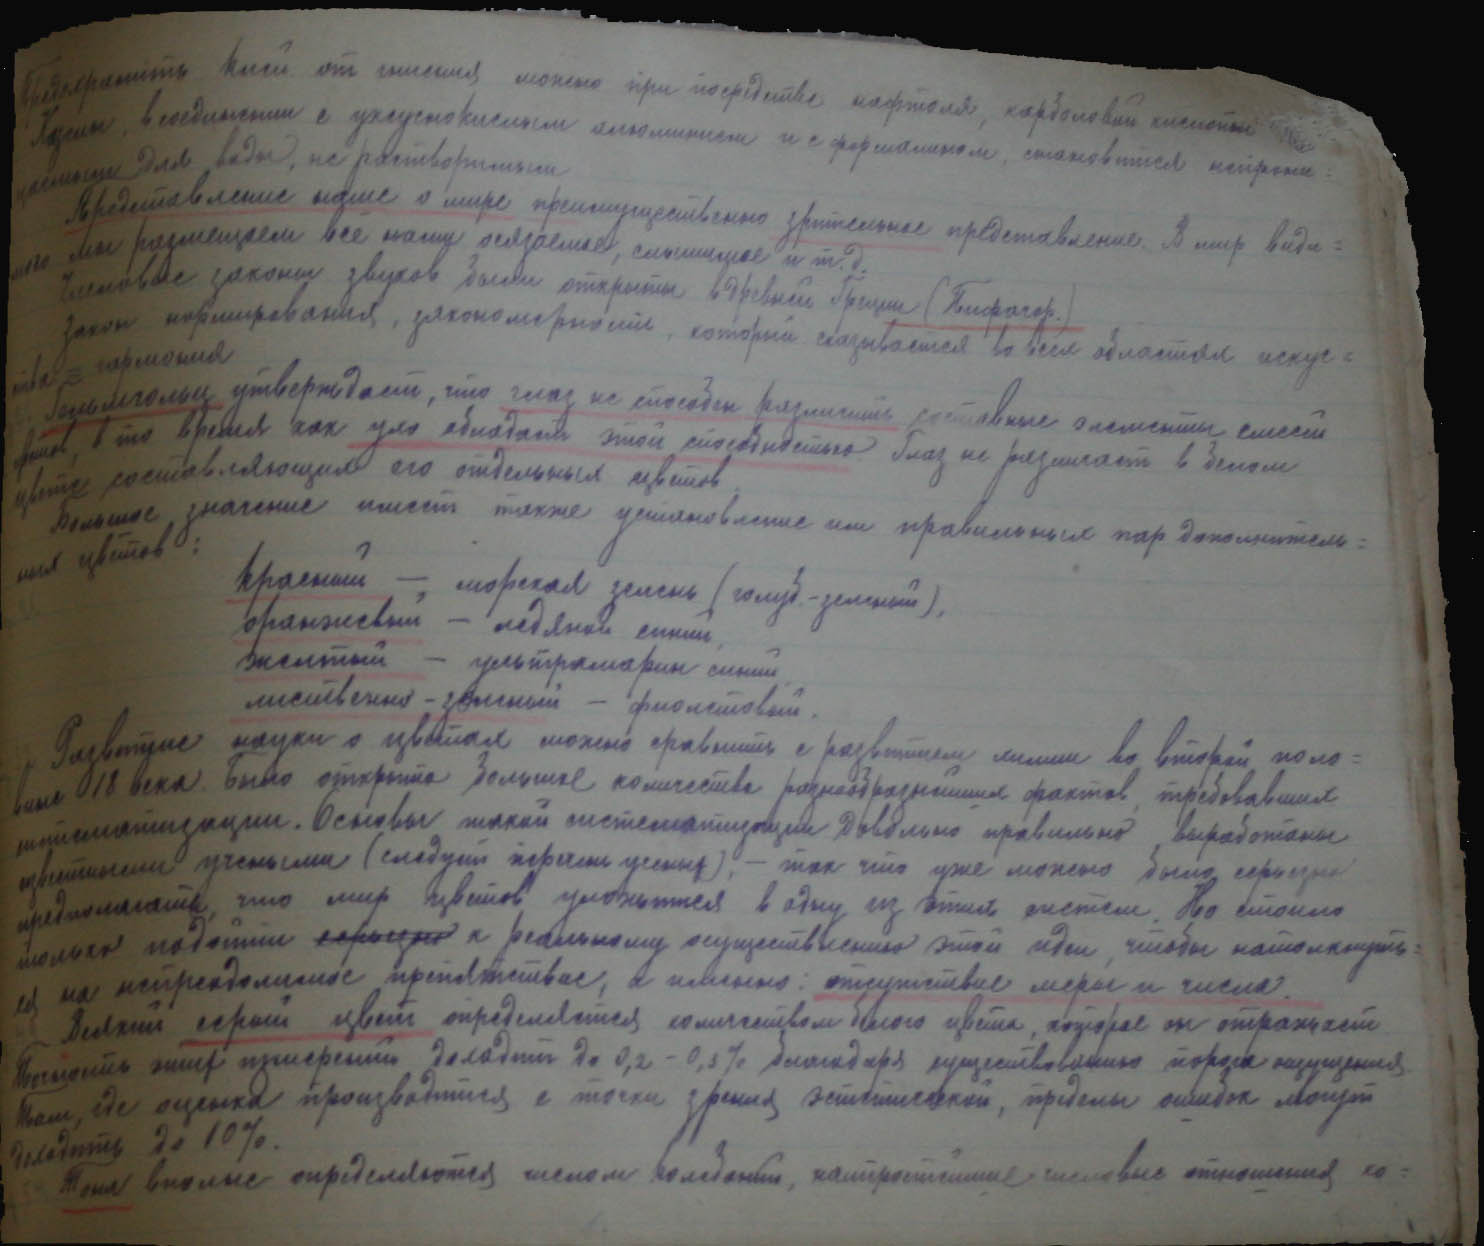 Предохранить клей от гниения можно при посредстве нафтоля, карболовой кислоты
Казеин, в соединении с уксуснокислым алюминием и с формалином, становится непрони=
цаемым для воды, не растворимым
Представление наше о мире преимущественно зрительное представление. В мир види=
мого мы размещаем всё нами осязаемое, слышимое и т.д.
Числовые законы звуков были открыты в древней Греции (Пифагор.)
Закон нормирования, закономерность, который сказывается во всех областях искус=
тва = гармония
Гельмгольц утверждает, что глаз не способен различить составные элементы смеси
цветов, в то время как ухо обладает этой способностью. Глаз не различает в белом
цвете составляющих его отдельных цветов.
Большое значение имеет также установление им правильных пар дополнитель=
ных цветов:
красный — морская зелень (голуб.-зеленый),
оранжевый — ледяной синий,
желтый — ультрамарин синий,
лиственно-зеленый — фиолетовый.
Развитие науки о цветах можно сравнить с развитием химии во второй поло=
вине 18 века. Было открыто большое количество разнообразнейших фактов, требовавших
систематизации. Основы такой систематизации довольно правильно выработаны
известными учеными (следует перечень ученых), — так что уже можно было серьезно
предполагать, что мир цветов уложится в одну из этих систем. Но стоило
только подойти серьезно к реальному осуществлению этой идеи, чтобы натолкнуть=
ся на непреодолимое препятствие, а именно: отсутствие меры и числа.
Всякий серый цвет определяется количеством белого цвета, которое он отражает
Точность этих измерений доходит до 0,2 – 0,5% благодаря существованию порога ощущения
Там, где оценка производится с точки зрения эстетической, пределы ошибок могут
доходить до 10%.
Тона вполне определяются числом колебаний, наипростейшие числовые отношения ко=